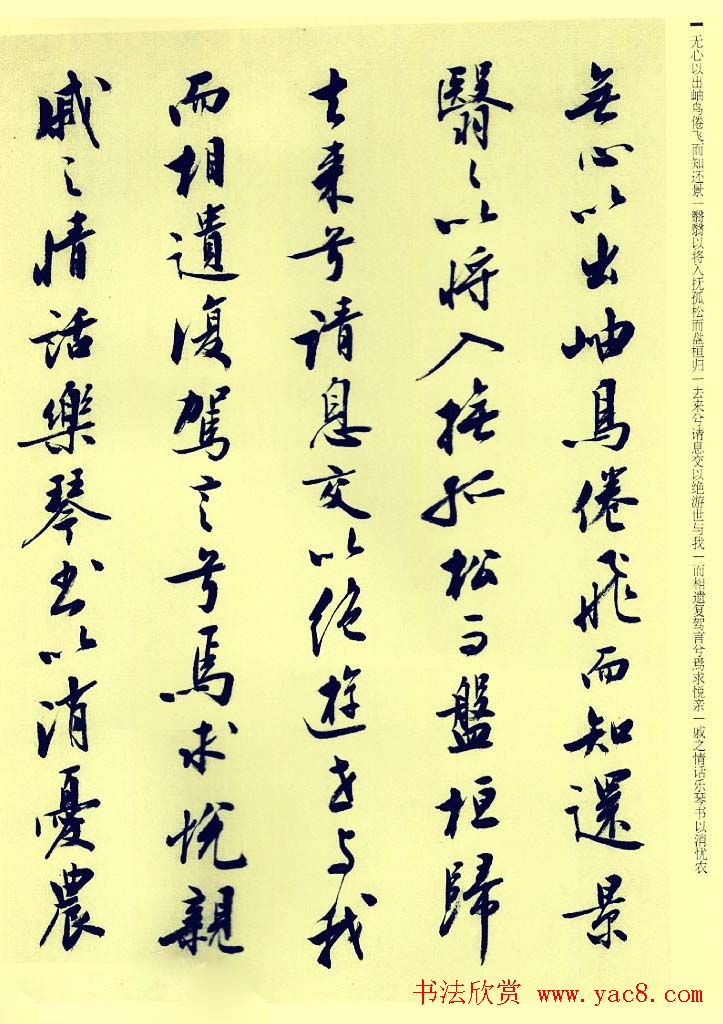 无心以出岫鸟倦飞而知还景|翳翳以将入抚孤松而盘桓归|去来兮请息交以绝游世与我|而相遗复驾言兮焉求悦亲|戚之情话乐琴书以消忧农
無心以出岫鳥倦飛而知還景
翳々以將入撫孤松而盤桓歸
去來兮請息交以絕遊世与我
而相遺復駕言兮焉求悅親
戚之情話樂琴書以消憂農
书法欣赏 www.yac8.com